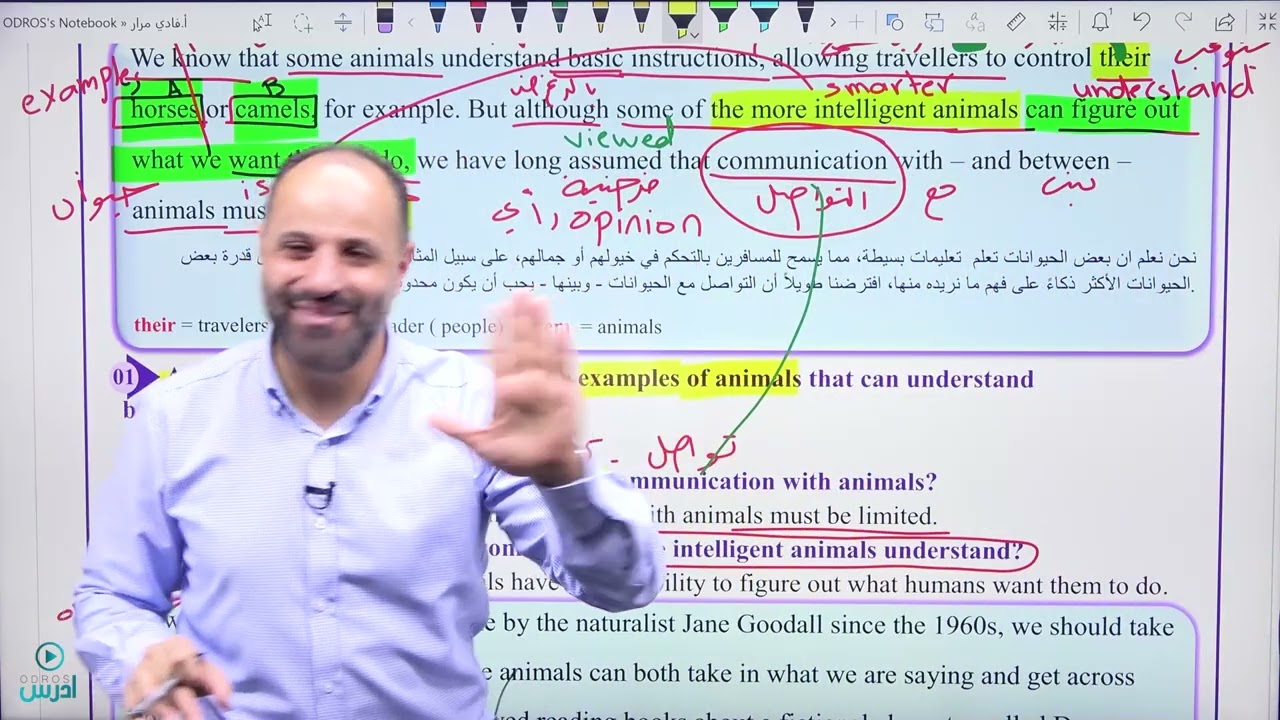 ODROS's Notebook » أ.فادي مرار
We know that some animals understand basic instructions, allowing travellers to control their
examples
A
B
smarter
understand
horses or camels, for example. But although some of the more intelligent animals can figure out
viewed
what we want do, we have long assumed that communication with – and between –
is
التواصل
مع
بين
animals mus
رأي, opinion
نحن نعلم ان بعض الحيوانات تعلم تعليمات بسيطة، مما يسمح للمسافرين بالتحكم في خيولهم أو جمالهم، على سبيل المثا قدرة بعض
الحيوانات الأكثر ذكاءً على فهم ما نريده منها، افترضنا طويلاً أن التواصل مع الحيوانات - وبينها - يجب أن يكون محدو
their = travelers ader ( people) = animals
01 examples of animals that can understand
b
تواصل
mmunication with animals?
ith animals must be limited.
intelligent animals understand?
ls have ility to figure out what humans want them to do.
e by the naturalist Jane Goodall since the 1960s, we should take
e animals can both take in what we are saying and get across
wed reading books about a fictional
ODROS
ادرس